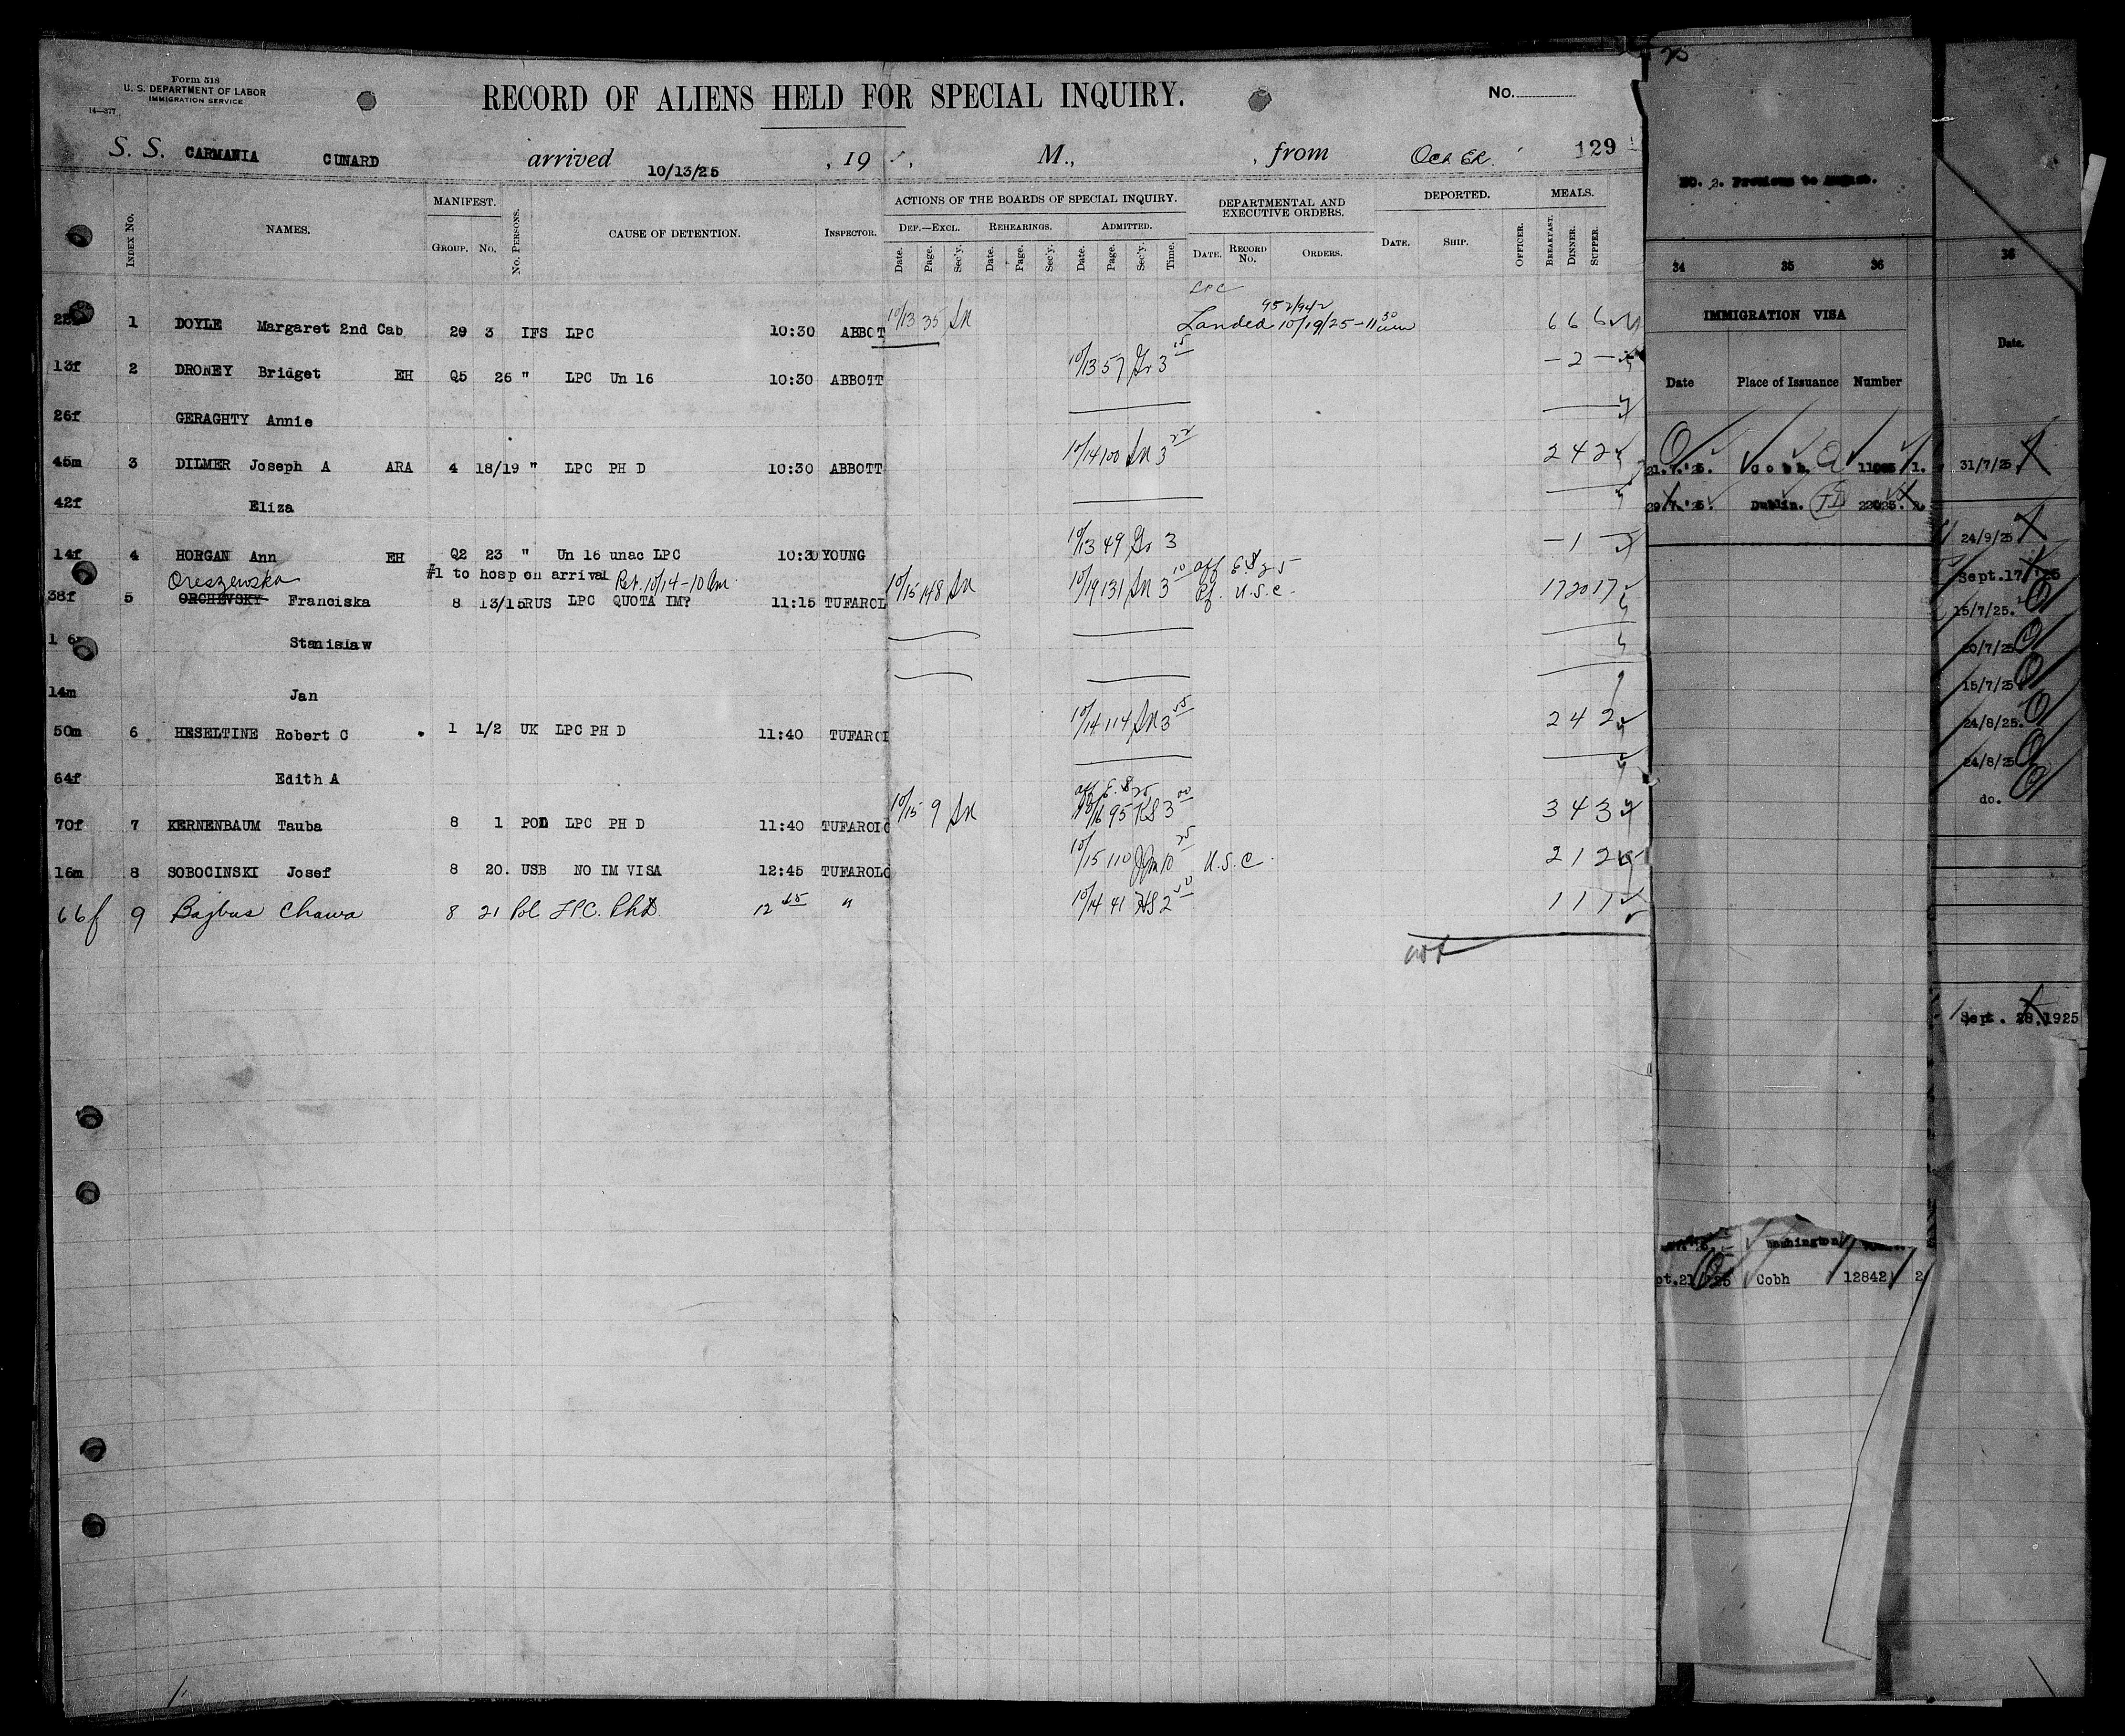 Form 518
U. S. DEPARTMENT OF LABOR
IMMIGRATION SERVICE
14—377
RECORD OF ALIENS HELD FOR SPECIAL INQUIRY.
No.
S. S. CARMANIA CUNARD arrived 10/13/25 , 19 , M., , from 129
INDEX No. NAMES. MANIFEST. GROUP. No. No. PERSONS. CAUSE OF DETENTION. INSPECTOR. ACTIONS OF THE BOARDS OF SPECIAL INQUIRY. DEPARTMENTAL AND EXECUTIVE ORDERS. DEPORTED. MEALS.
DEF.—EXCL. REHEARINGS. ADMITTED.
Date. Page. Sec'y. Date. Page. Sec'y. Date. Page. Sec'y. Time. DATE. RECORD No. ORDERS. DATE. SHIP. OFFICER. BREAKFAST. DINNER. SUPPER.
LPC
952/942
1 DOYLE Margaret 2nd Cab 29 3 IFS LPC 10:30 ABBOT 10/13 35 Landed 10/19/25 - 11 30 6 6 6
13f 2 DRONEY Bridget EH Q5 26 " LPC Un 16 10:30 ABBOTT 10/13 57 3 15 - 2 -
26f GERAGHTY Annie
45m 3 DILMER Joseph A ARA 4 18/19 " LPC PH D 10:30 ABBOTT 10/14 100 3 22 2 4 2
42f Eliza
14f 4 HORGAN Ann EH Q2 23 " Un 16 unac LPC 10:30 YOUNG 10/13 49 3 - 1 -
#1 to hosp on arrival Ret. 10/14 - 10 am.
Oreszewska
38f 5 ORCHEVSKY Franciska 8 13/15 RUS LPC QUOTA IM? 11:15 TUFAROL 10/15 148 10/19 131 3 10 U.S.C. 17 20 17
Stanislaw
14m Jan
50m 6 HESELTINE Robert C 1 1/2 UK LPC PH D 11:40 TUFAROL 10/14 114 3 55 2 4 2
64f Edith A
70f 7 KERNENBAUM Tauba 8 1 POL LPC PH D 11:40 TUFAROLO 10/15 9 10/16 95 KS 3 00 3 4 3
16m 8 SOBOCINSKI Josef 8 20. USB NO IM VISA 12:45 TUFAROLO 10/15 110 10 25 U.S.C. 2 1 2
66f 9 Bajbus Chawa 8 21 Pol LPC. PhD. 12 45 " 10/14 41 2 1 1 1
NO. 2. Previous to August.
34 35 36
IMMIGRATION VISA
Date Place of Issuance Number
21.7.'25. Cobh. 1.
29.7.'25. Dublin. 22025. 2.
Washington
pt.21 '25 Cobh 12842 2
36
Date.
31/7/25.
24/9/25
Sept.17 '25
15/7/25.
20/7/25
15/7/25
24/8/25.
24/8/25
do.
Sept. 28.1925